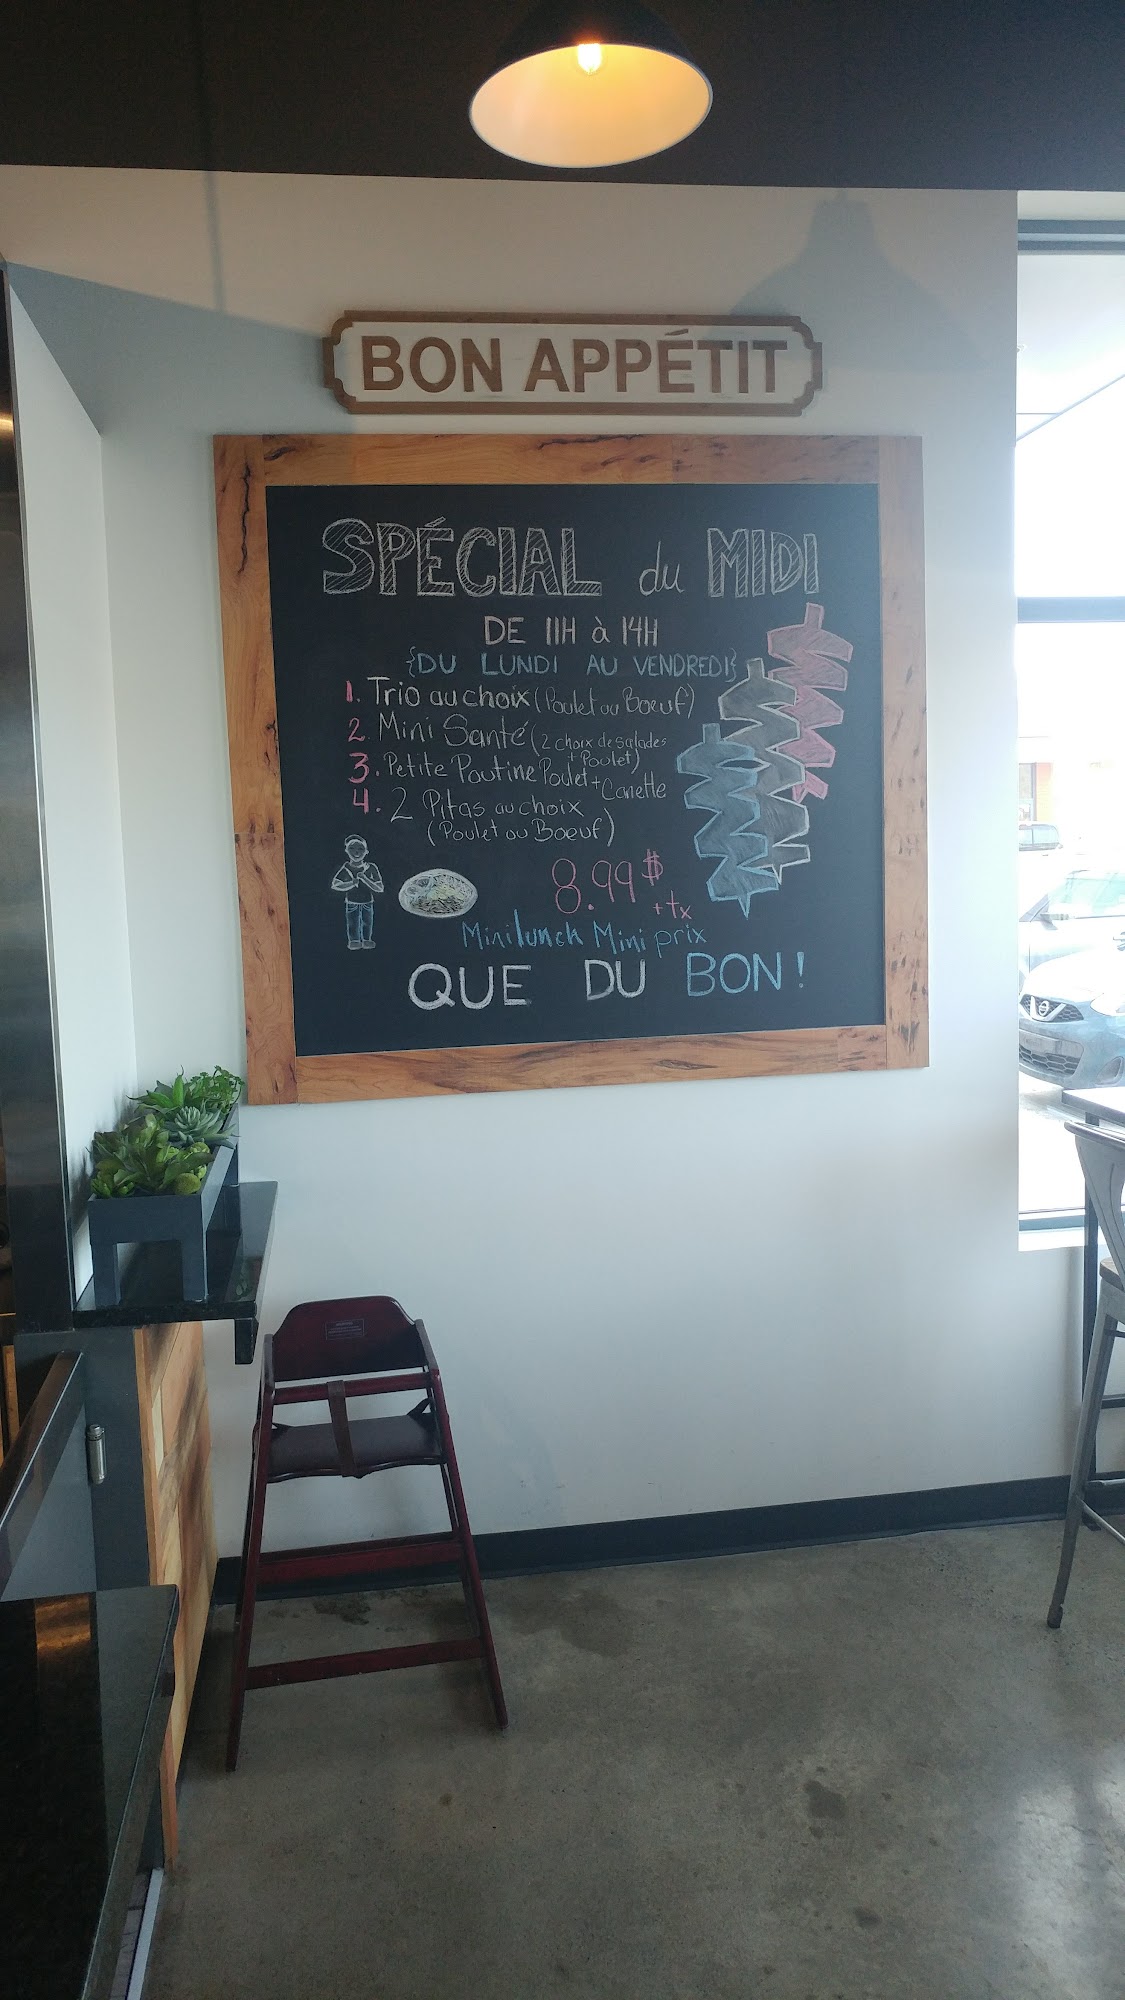 BON APPÉTIT
SPÉCIAL du MIDI
DE 11H à 14H
{DU LUNDI AU VENDREDI}
1. Trio au choix (Poulet ou Boeuf)
2. Mini Santé (2 choix de salades
+ Poulet)
3. Petite Poutine Poulet + Canette
4. 2 Pitas au choix
(Poulet ou Boeuf)
8.99$
+tx
Minilunch Mini prix
QUE DU BON!